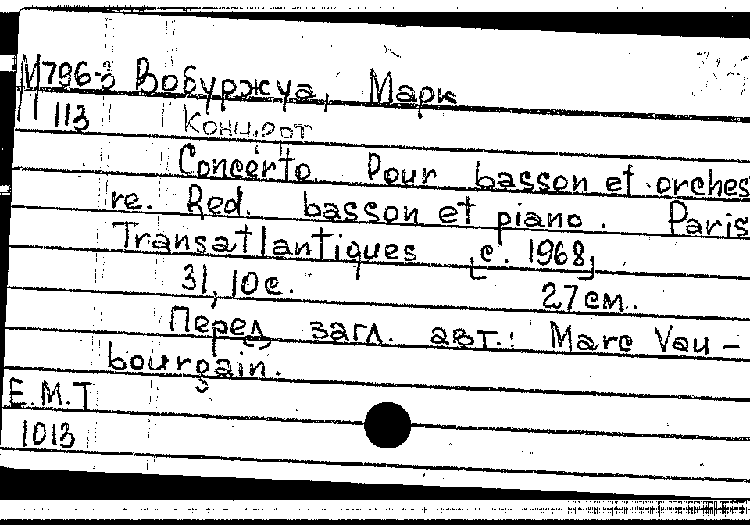 М796-3 Вобуржуа, Марк
113 Концерт
Concerto Pour basson et orches
re. Red. basson et piano. Paris
Transatlantiques [c. 1968]
31, 10с. 27см.
Перед загл. авт.: Marc Vau-
bourgain.
E.M.T
1013